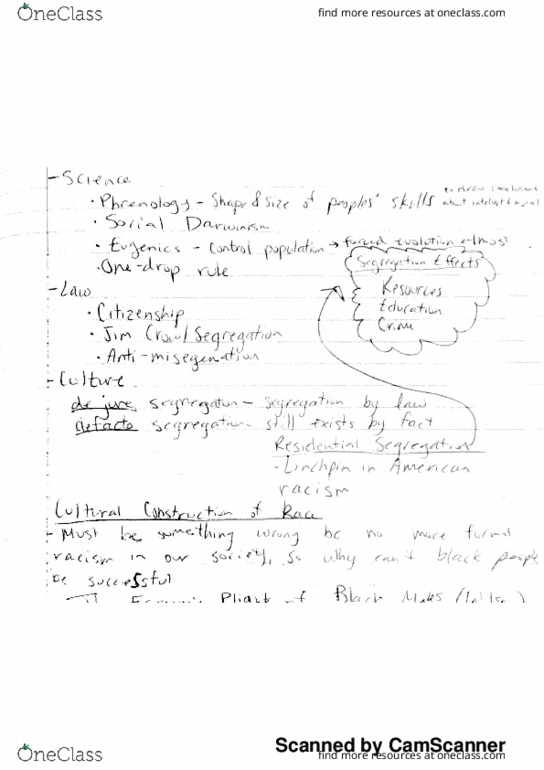 OneClass
find more resources at oneclass.com
- Science
• Phrenology - Shape & Size of peoples' skills
about
• Social Darwinism
• Eugenics - Control population → forced evolution almost
• One-drop rule
Segregation Effects
Resources
Education
Crime
- Law
• Citizenship
• Jim Crow/Segregation
• Anti-misegenation
- Culture
de jure segregation - segregation by law
defacto segregation - still exists by fact
Residential Segregation
- Linchpin in American
racism
Cultural Construction of Race
- Must be something wrong bc no more formal
racism in our society, so why can't black people
be successful
Plight of Black Males
Scanned by CamScanner
OneClass
find more resources at oneclass.com